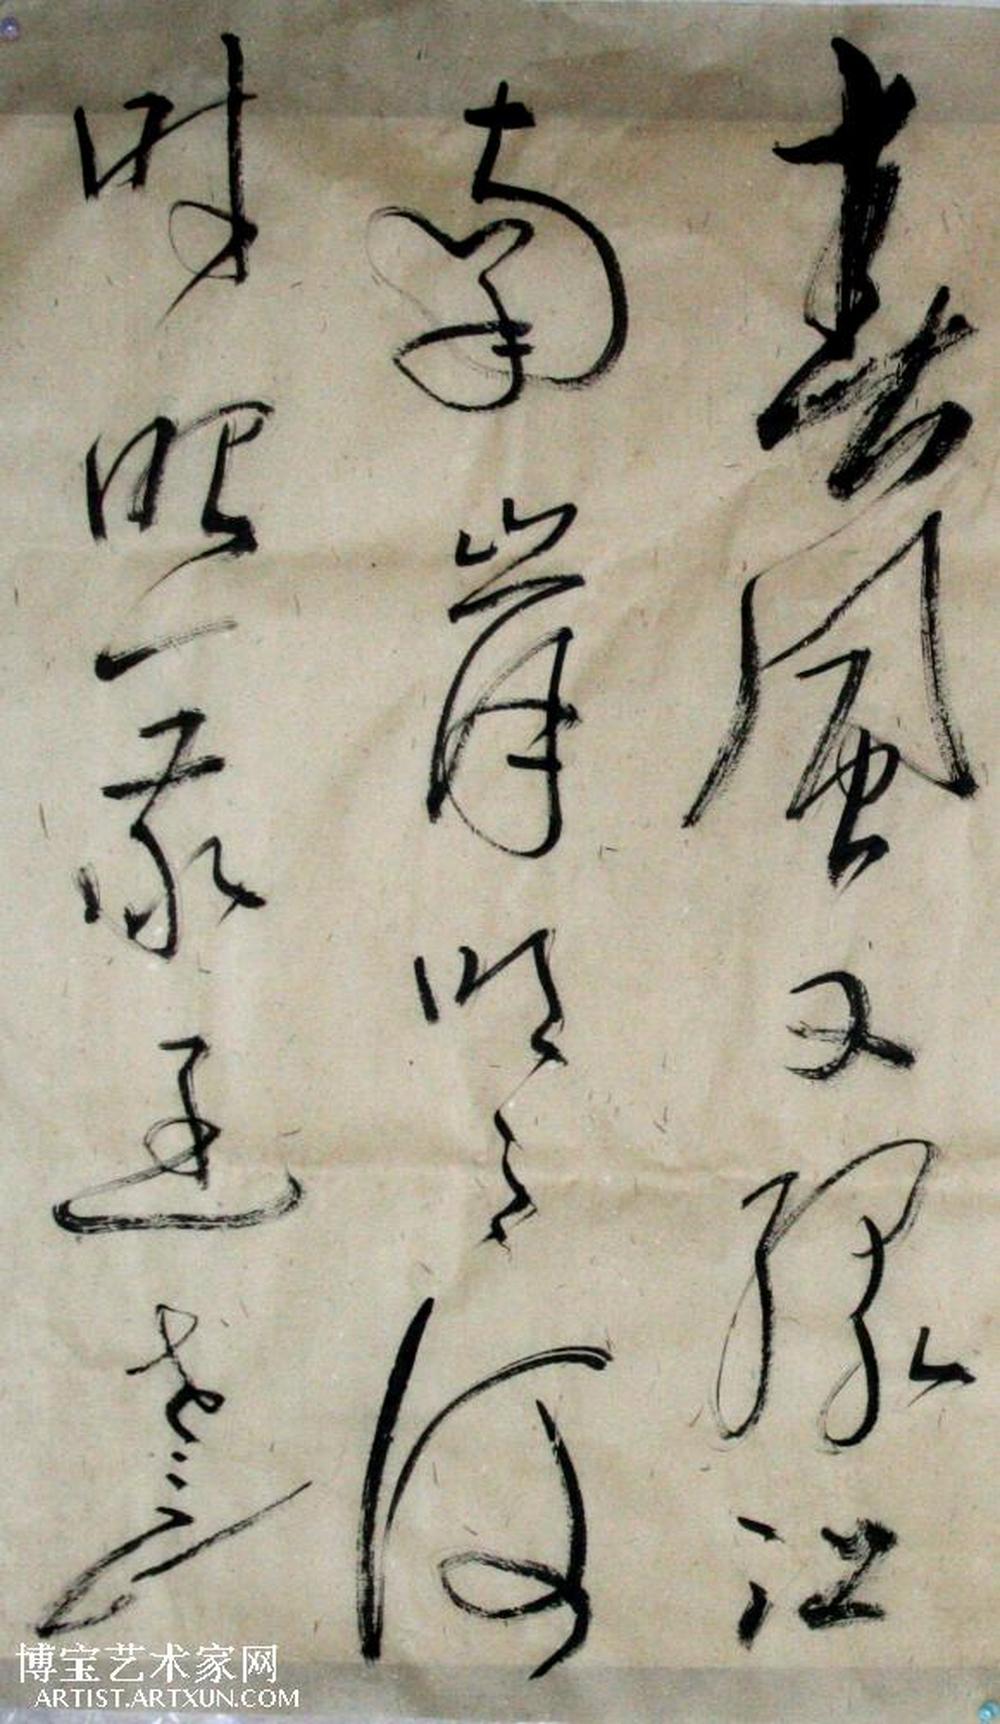 春風又綠江
南岸明月何
時照我還
博宝艺术家网
ARTIST.ARTXUN.COM